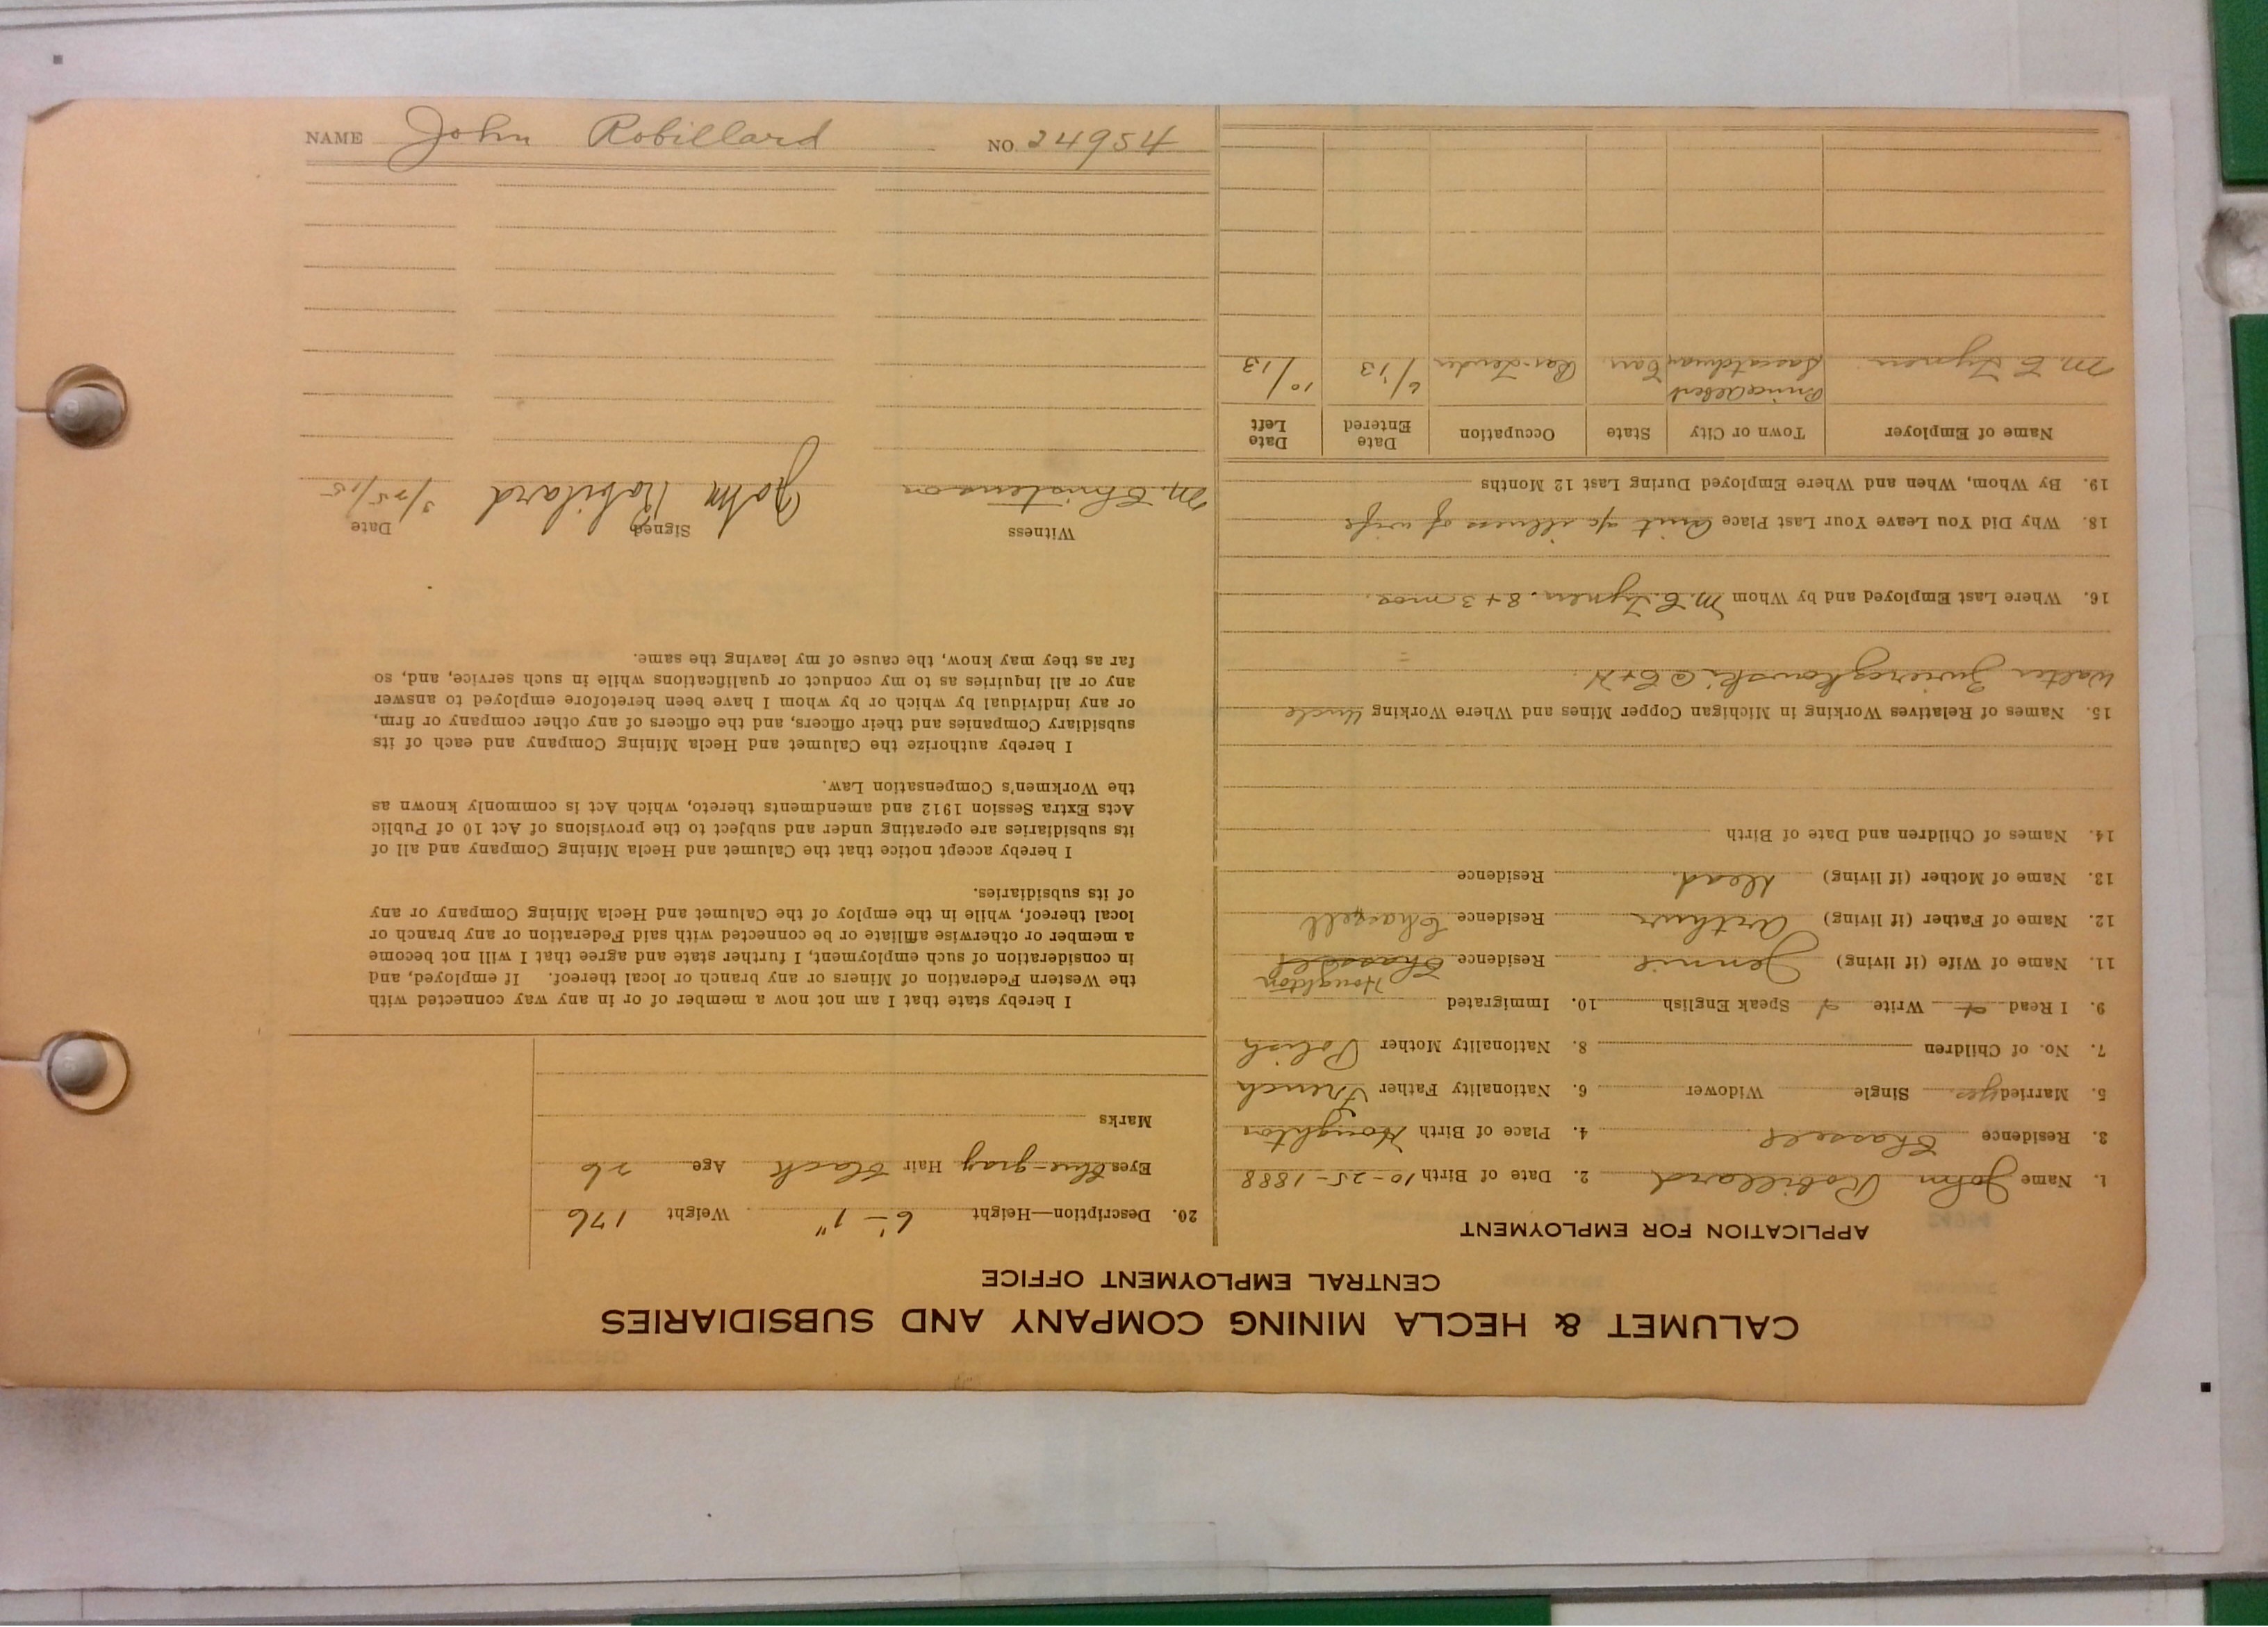 NAME John Robillard NO. 24954
CALUMET & HECLA MINING COMPANY AND SUBSIDIARIES
CENTRAL EMPLOYMENT OFFICE
APPLICATION FOR EMPLOYMENT
1. Name John Robillard 2. Date of Birth 10-25-1888
3. Residence Chassell 4. Place of Birth Houghton
5. Married yes Single Widower 6. Nationality Father French
7. No. of Children 8. Nationality Mother Polish
9. I Read Write Speak English 10. Immigrated
Houghton
11. Name of Wife (if living) Jennie Residence Chassel
12. Name of Father (if living) Arthur Residence Chassell
13. Name of Mother (if living) Dead. Residence
14. Names of Children and Date of Birth
15. Names of Relatives Working in Michigan Copper Mines and Where Working Uncle
Walter @ C+H.
16. Where Last Employed and by Whom M. E. 8 + 3 mos.
18. Why Did You Leave Your Last Place illness of wife
19. By Whom, When and Where Employed During Last 12 Months
Name of Employer Town or City State Occupation Date Entered Date Left
M. E. Prince Albert Saskatchwan Can. Bar-Tender 6/13 10/13
20. Description—Height 6'-1" Weight 176
Eyes Blue-gray Hair Black Age 26
Marks
I hereby state that I am not now a member of or in any way connected with
the Western Federation of Miners or any branch or local thereof. If employed, and
in consideration of such employment, I further state and agree that I will not become
a member or otherwise affiliate or be connected with said Federation or any branch or
local thereof, while in the employ of the Calumet and Hecla Mining Company or any
of its subsidiaries.
I hereby accept notice that the Calumet and Hecla Mining Company and all of
its subsidiaries are operating under and subject to the provisions of Act 10 of Public
Acts Extra Session 1912 and amendments thereto, which Act is commonly known as
the Workmen's Compensation Law.
I hereby authorize the Calumet and Hecla Mining Company and each of its
subsidiary Companies and their officers, and the officers of any other company or firm,
or any individual by which or by whom I have been heretofore employed to answer
any or all inquiries as to my conduct or qualifications while in such service, and, so
far as they may know, the cause of my leaving the same.
Witness Signed Date
M. Christenson John Robilard 3/25/15